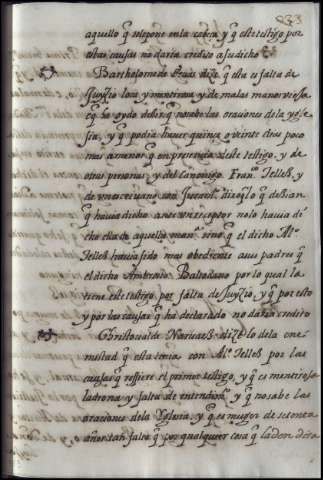 233
aquello q̃ se le pone en la cabeça y q̃ este testigo por
estas causas no daria credito a su dicho
Bartholome de dize q̃ ella es falta de
Juyzio loca y mentirosa y de malas maneras
q̃ ha oydo dezir q̃ no sabe las oraciones de la ygle
sia, y q̃ podia haver quinze o veinte dias poco
mas a menos q̃ en presencia deste testigo, y de
otras personas y del Canonigo Franᶜᵒ Tellez, y
de un
q̃ havia dicho a no lo havia di
cho ella de aquella manᵃ sino q̃ el dicho Alᵒ
Tellez havia sido mas obediente a sus padres q̃
el dicho Ambrosio Baltodano por lo qual la
tiene este testigo por falta de Juyzio, y q̃ por esto
y por las causas q̃ ha declarado no daria credito
Christoval de Narvaez dize lo de la ene
mistad q̃ ella tenia con Alᵒ Tellez por las
causas q̃ reffiere el primer testigo, y q̃ es mentirosa
ladrona y falta de entendimᵗᵒ y q̃ no sabe las
oraciones de la Yglesia, y q̃ es muger de setenta
años tan falta q̃ por qualquier cosa q̃ la den dira